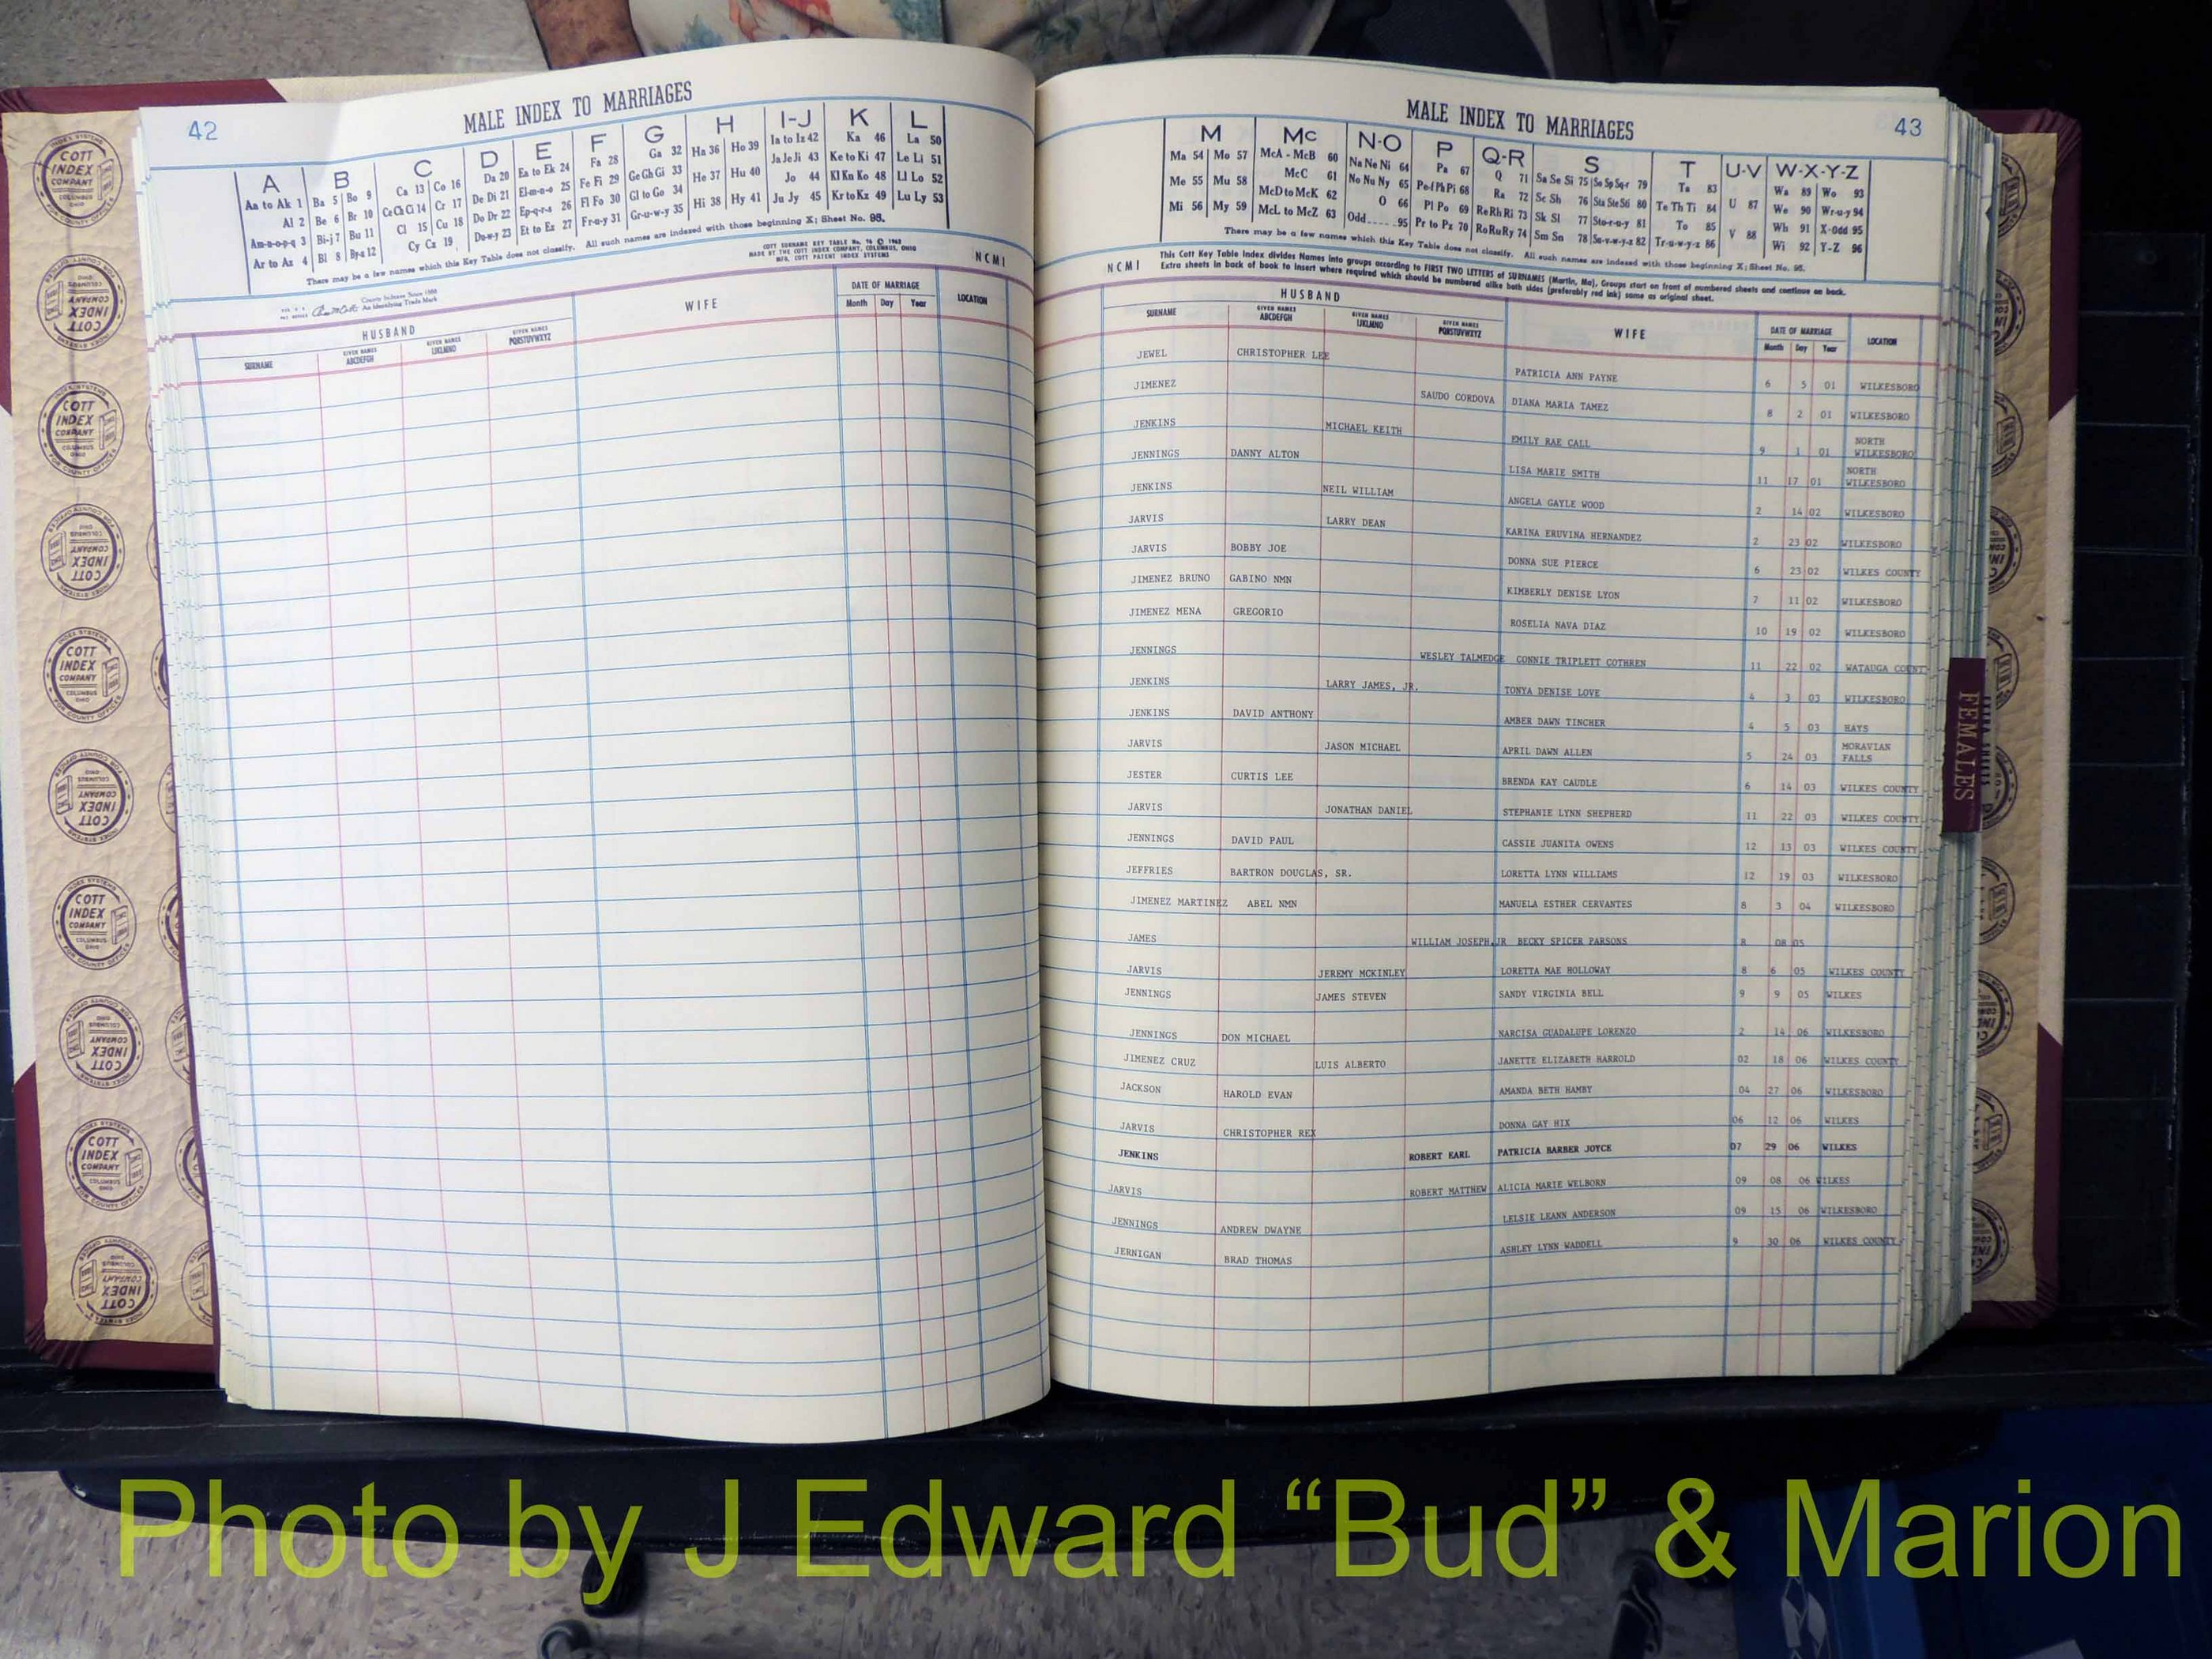 42
MALE INDEX TO MARRIAGES
A
B
C
D
E
F
G
H
I-J
K
L
Aa to Ak 1
Al 2
Am-n-o-p-q 3
Ar to Az 4
Ba 5
Be 6
Bi-j 7
Bl 8
Bo 9
Br 10
Bu 11
By-z 12
Ca 13
Ce Ch Ci 14
Cl 15
Cy Cz 19
Co 16
Cr 17
Cu 18
Da 20
De Di 21
Do Dr 22
Du-w-y 23
Ea to Ek 24
El-m-n-o 25
Ep-q-r-s 26
Et to Ez 27
Fa 28
Fe Fi 29
Fl Fo 30
Fr-u-y 31
Ga 32
Ge Gh Gi 33
Gl to Go 34
Gr-u-w-y 35
Ha 36
He 37
Hi 38
Ho 39
Hu 40
Hy 41
Ia to Iz 42
Ja Je Ji 43
Jo 44
Ju Jy 45
Ka 46
Ke to Ki 47
Kl Kn Ko 48
Kr to Kz 49
La 50
Le Li 51
Ll Lo 52
Lu Ly 53
There may be a few names which this Key Table does not classify. All such names are indexed with those beginning X; Sheet No. 96.
COTT SURNAME KEY TABLE No. 96 © 1962
MADE BY THE COTT INDEX COMPANY, COLUMBUS, OHIO
MFG. COTT PATENT INDEX SYSTEMS
NCMI
County Indexes Since 1888
An Identifying Trade Mark
HUSBAND
WIFE
DATE OF MARRIAGE
LOCATION
SURNAME
GIVEN NAMES ABCDEFGH
GIVEN NAMES IJKLMNO
GIVEN NAMES PQRSTUVWXYZ
Month Day Year
MALE INDEX TO MARRIAGES
43
M
Mc
N-O
P
Q-R
S
T
U-V
W-X-Y-Z
Ma 54
Me 55
Mi 56
Mo 57
Mu 58
My 59
McA - McB 60
McC 61
McD to McK 62
McL to McZ 63
Na Ne Ni 64
No Nu Ny 65
O 66
Odd 95
Pa 67
Pe-f Ph Pi 68
Pl Po 69
Pr to Pz 70
Q 71
Ra 72
Re Rh Ri 73
Ro Ru Ry 74
Sa Se Si 75
Sc Sh 76
Sk Sl 77
Sm Sn 78
So Sp Sq-r 79
Sta Ste Sti 80
Sto-r-u-y 81
Su-v-w-y-z 82
Ta 83
Te Th Ti 84
To 85
Tr-u-w-y-z 86
U 87
V 88
Wa 89
We 90
Wh 91
Wi 92
Wo 93
Wr-u-y 94
X-Odd 95
Y-Z 96
There may be a few names which this Key Table does not classify. All such names are indexed with those beginning X; Sheet No. 96.
NCMI
This Cott Key Table Index divides Names into groups according to FIRST TWO LETTERS of SURNAMES (Martin, Ma). Groups start on front of numbered sheets and continue on back.
Extra sheets in back of book to insert where required which should be numbered alike both sides (preferably red ink) same as original sheet.
HUSBAND
WIFE
DATE OF MARRIAGE
LOCATION
SURNAME
GIVEN NAMES ABCDEFGH
GIVEN NAMES IJKLMNO
GIVEN NAMES PQRSTUVWXYZ
Month Day Year
JEWEL CHRISTOPHER LEE PATRICIA ANN PAYNE 6 5 01 WILKESBORO
JIMENEZ SAUDO CORDOVA DIANA MARIA TAMEZ 8 2 01 WILKESBORO
JENKINS MICHAEL KEITH EMILY RAE CALL 9 1 01 NORTH WILKESBORO
JENNINGS DANNY ALTON LISA MARIE SMITH 11 17 01 NORTH WILKESBORO
JENKINS NEIL WILLIAM ANGELA GAYLE WOOD 2 14 02 WILKESBORO
JARVIS LARRY DEAN KARINA ERUVINA HERNANDEZ 2 23 02 WILKESBORO
JARVIS BOBBY JOE DONNA SUE PIERCE 6 23 02 WILKES COUNTY
JIMENEZ BRUNO GABINO NMN KIMBERLY DENISE LYON 7 11 02 WILKESBORO
JIMENEZ MENA GREGORIO ROSELIA NAVA DIAZ 10 19 02 WILKESBORO
JENNINGS WESLEY TALMEDGE CONNIE TRIPLETT COTHREN 11 22 02 WATAUGA COUNT
JENKINS LARRY JAMES, JR. TONYA DENISE LOVE 4 3 03 WILKESBORO
JENKINS DAVID ANTHONY AMBER DAWN TINCHER 4 5 03 HAYS
JARVIS JASON MICHAEL APRIL DAWN ALLEN 5 24 03 MORAVIAN FALLS
JESTER CURTIS LEE BRENDA KAY CAUDLE 6 14 03 WILKES COUNTY
JARVIS JONATHAN DANIEL STEPHANIE LYNN SHEPHERD 11 22 03 WILKES COUNTY
JENNINGS DAVID PAUL CASSIE JUANITA OWENS 12 13 03 WILKES COUNTY
JEFFRIES BARTRON DOUGLAS, SR. LORETTA LYNN WILLIAMS 12 19 03 WILKESBORO
JIMENEZ MARTINEZ ABEL NMN MANUELA ESTHER CERVANTES 8 3 04 WILKESBORO
JAMES WILLIAM JOSEPH,JR BECKY SPICER PARSONS 8 08 05
JARVIS JEREMY MCKINLEY LORETTA MAE HOLLOWAY 8 6 05 WILKES COUNTY
JENNINGS JAMES STEVEN SANDY VIRGINIA BELL 9 9 05 WILKES
JENNINGS DON MICHAEL NARCISA GUADALUPE LORENZO 2 14 06 WILKESBORO
JIMENEZ CRUZ LUIS ALBERTO JANETTE ELIZABETH HARROLD 02 18 06 WILKES COUNTY
JACKSON HAROLD EVAN AMANDA BETH HAMBY 04 27 06 WILKESBORO
JARVIS CHRISTOPHER REX DONNA GAY HIX 06 12 06 WILKES
JENKINS ROBERT EARL PATRICIA BARBER JOYCE 07 29 06 WILKES
JARVIS ROBERT MATTHEW ALICIA MARIE WELBORN 09 08 06 WILKES
JENNINGS ANDREW DWAYNE LELSIE LEANN ANDERSON 09 15 06 WILKESBORO
JERNIGAN BRAD THOMAS ASHLEY LYNN WADDELL 9 30 06 WILKES COUNTY
FEMALES
COTT INDEX COMPANY
COLUMBUS OHIO
INDEX SYSTEMS
FOR COUNTY OFFICES
Photo by J Edward “Bud” & Marion